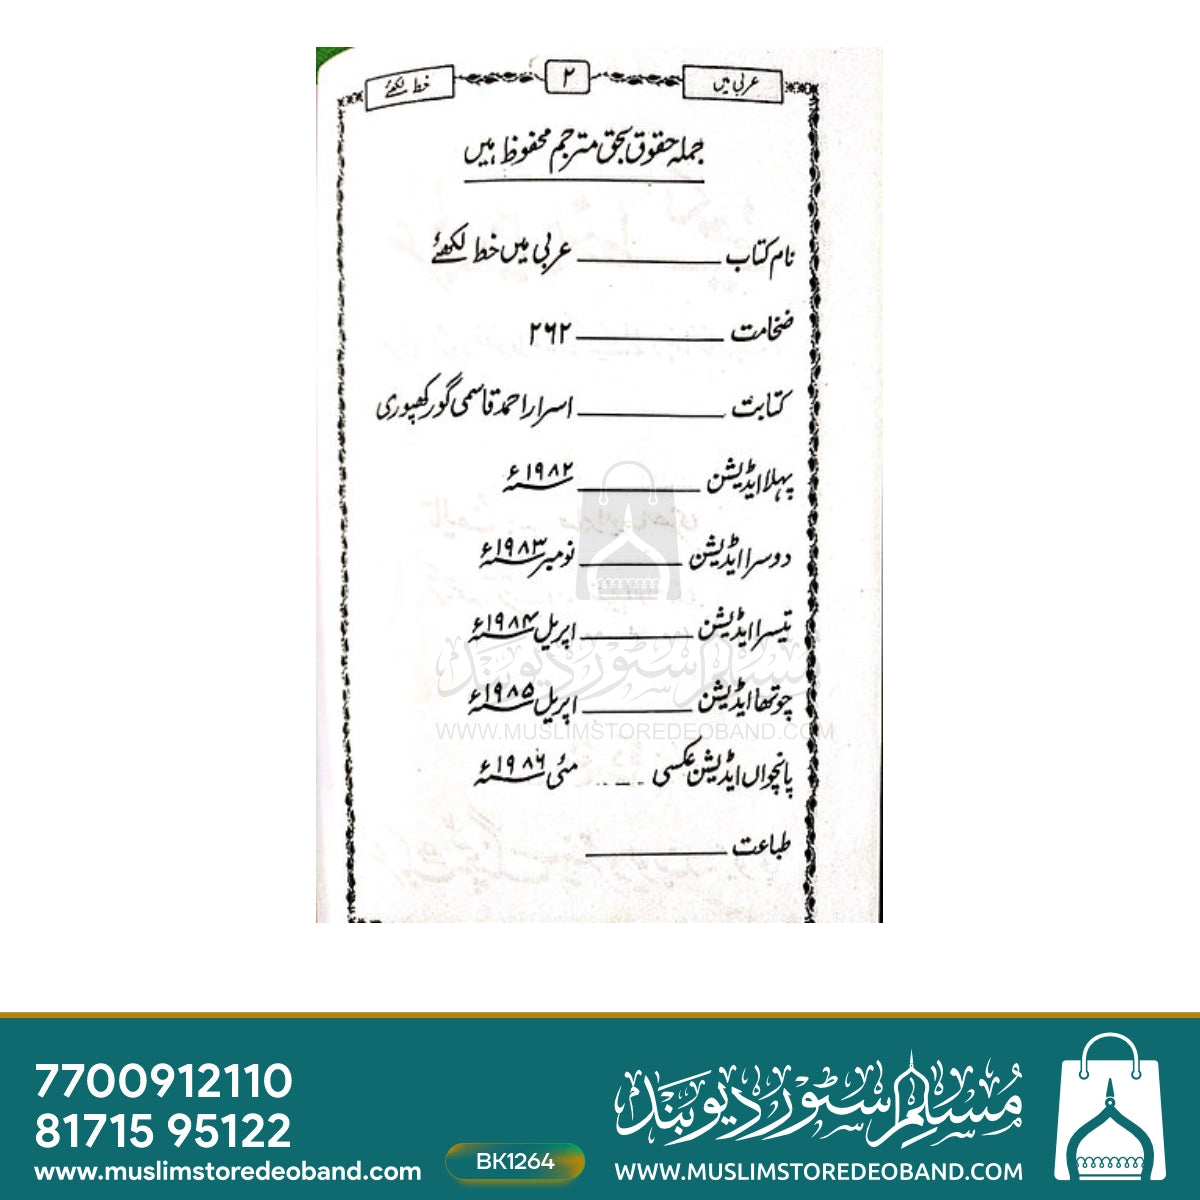 عربی میں ۲ خط لکھئے
جملہ حقوق بحق مترجم محفوظ ہیں
نام کتاب ــــــ عربی میں خط لکھئے
ضخامت ــــــ ۲۶۲
کتابت ــــــ اسرار احمد قاسمی گورکھپوری
پہلا ایڈیشن ــــــ ۱۹۸۲ء
دوسرا ایڈیشن ــــــ نومبر ۱۹۸۳ء
تیسرا ایڈیشن ــــــ اپریل ۱۹۸۴ء
چوتھا ایڈیشن ــــــ اپریل ۱۹۸۵ء
پانچواں ایڈیشن عکسی ــــــ مئی ۱۹۸۶ء
طباعت ــــــ
مسلم سٹور دیوبند
WWW.MUSLIMSTOREDEOBAND.COM
7700912110
81715 95122
www.muslimstoredeoband.com
BK1264
مُسلم سٹور دیوبند
WWW.MUSLIMSTOREDEOBAND.COM